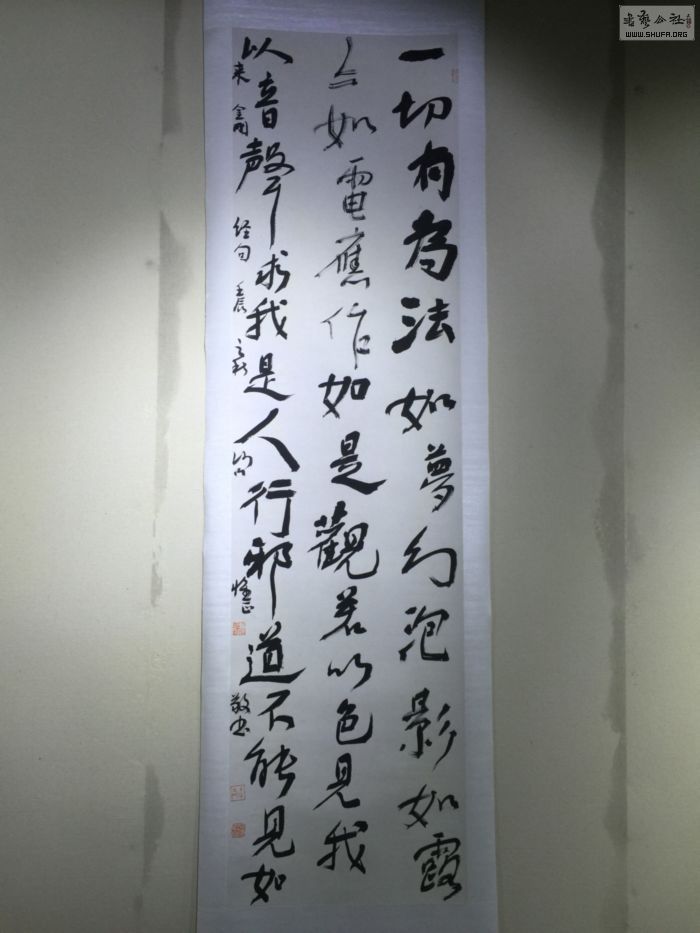 一切有為法如夢幻泡影如露
亦如電應作如是觀若以色見我
以音聲求我是人行邪道不能見如
来 金剛 经句 壬辰 之秋
敬书
书艺公社
WWW.SHUFA.ORG